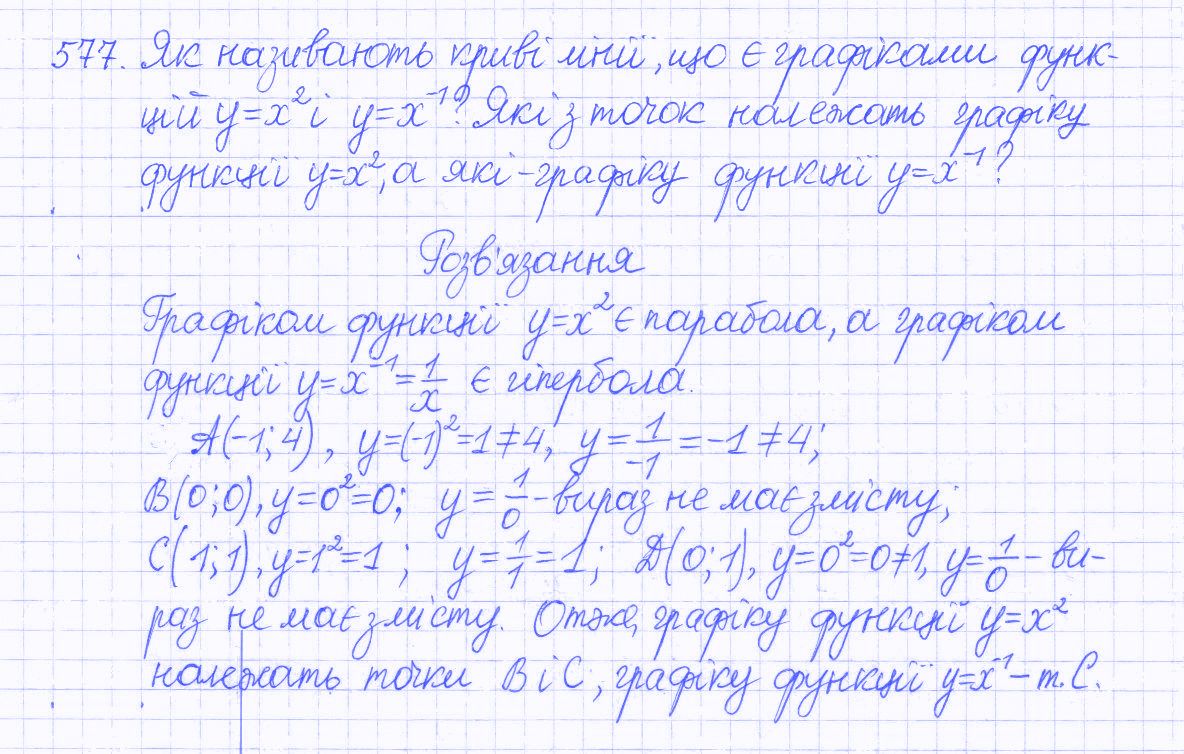 577. Як називають криві лінії, що є графіками функ-
цій y=x² і y=x⁻¹? Які з точок належать графіку
функції y=x², а які - графіку функції y=x⁻¹?
Розв'язання
Графіком функції y=x² є парабола, а графіком
функції y=x⁻¹=1/x є гіпербола.
A(-1;4), y=(-1)²=1≠4, y=1/-1=-1≠4;
B(0;0), y=0²=0; y=1/0 - вираз не має змісту;
C(1;1), y=1²=1; y=1/1=1; D(0;1), y=0²=0≠1, y=1/0 - ви-
раз не має змісту. Отже, графіку функції y=x²
належать точки B і C, графіку функції y=x⁻¹ - т. C.